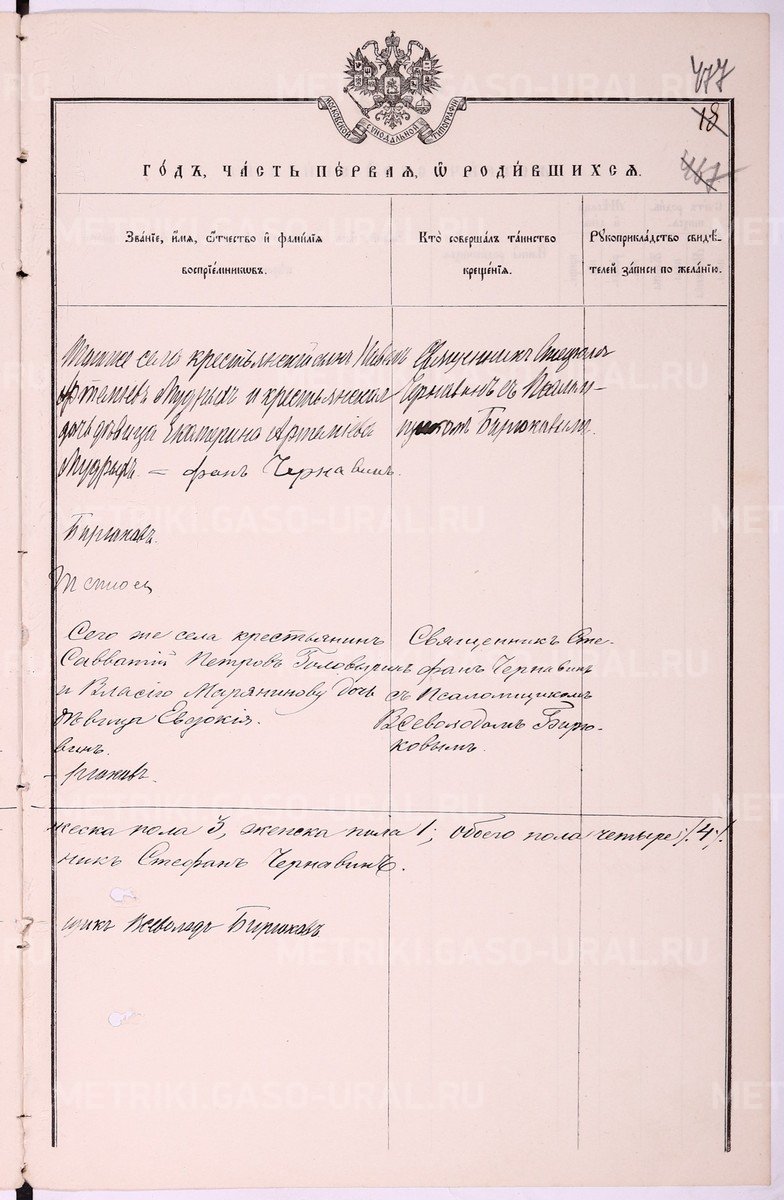 477
18
467
МОСКОВСКОЙ СѴНОДАЛЬНОЙ ТИПОГРАФІИ
ГО́ДЪ, ЧА́СТЬ ПЕ́РВАЯ, Ѡ РОДИ́ВШИХСЯ.
Зва́нїе, и҆́мя, ѻ҆́тчество и҆ фами́лїя
воспрїе́мникѡвъ.
Кто̀ соверша́лъ та́инство
креще́нїя.
Рꙋкоприкла́дство свидѣ́-
телей за́писи по жела́нїю.
села крестьянскій сынъ
Артемьевъ Мудрыхъ и крестьянская
дочь дѣвица Екатерина Артемiева
Мудрыхъ = фанъ Чернавинъ.
Священникъ Стефанъ
Чернавинъ съ Псалом-
щикомъ Бирюковымъ.
Бирюковъ.
Сего же села крестьянинъ
Савватій Петровъ
и дочь
дѣвица Евдокія.
винъ.
рюковъ.
Священникъ Сте-
фанъ Чернавинъ
съ Псаломщикомъ
Всеволодомъ Бирю-
ковымъ.
жеска пола 3, женска пола 1; обоего пола четыре /.4/.
никъ Стефанъ Чернавинъ.
щикъ Всеволодъ Бирюковъ
METRIKI.GASO-URAL.RU